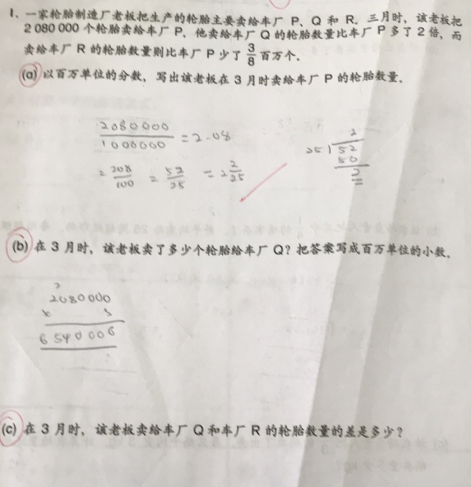 1. 一家轮胎制造厂老板把生产的轮胎主要卖给车厂 P、Q 和 R。三月时，该老板把
2 080 000 个轮胎卖给车厂 P，他卖给车厂 Q 的轮胎数量比车厂 P 多了 2 倍，而
卖给车厂 R 的轮胎数量则比车厂 P 少了 3/8 百万个。
(a) 以百万单位的分数，写出该老板在 3 月时卖给车厂 P 的轮胎数量。
2080000/1000000 = 2.08
= 208/100 = 52/25 = 2 2/25
2
25 52
50
2
(b) 在 3 月时，该老板卖了多少个轮胎给车厂 Q？把答案写成百万单位的小数。
2
2080000
× 3
6540006
(c) 在 3 月时，该老板卖给车厂 Q 和车厂 R 的轮胎数量的差是多少？